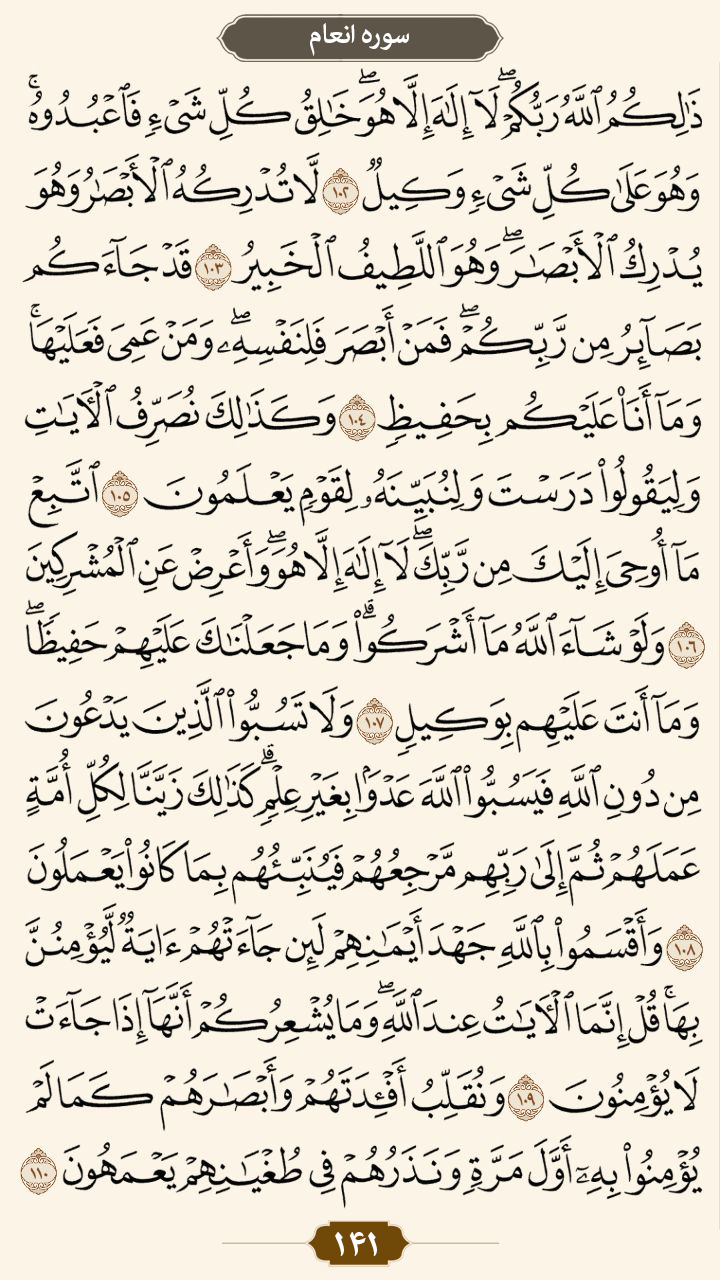 سوره انعام
ذَٰلِكُمُ ٱللَّهُ رَبُّكُمْۖ لَآ إِلَٰهَ إِلَّا هُوَۖ خَٰلِقُ كُلِّ شَىْءٍ فَٱعْبُدُوهُۚ
وَهُوَ عَلَىٰ كُلِّ شَىْءٍ وَكِيلٌ ١٠٢ لَّا تُدْرِكُهُ ٱلْأَبْصَٰرُ وَهُوَ
يُدْرِكُ ٱلْأَبْصَٰرَۖ وَهُوَ ٱللَّطِيفُ ٱلْخَبِيرُ ١٠٣ قَدْ جَآءَكُم
بَصَآئِرُ مِن رَّبِّكُمْۖ فَمَنْ أَبْصَرَ فَلِنَفْسِهِۦۖ وَمَنْ عَمِىَ فَعَلَيْهَاۚ
وَمَآ أَنَا۠ عَلَيْكُم بِحَفِيظٍ ١٠٤ وَكَذَٰلِكَ نُصَرِّفُ ٱلْأَيَٰتِ
وَلِيَقُولُوا۟ دَرَسْتَ وَلِنُبَيِّنَهُۥ لِقَوْمٍ يَعْلَمُونَ ١٠٥ ٱتَّبِعْ
مَآ أُوحِىَ إِلَيْكَ مِن رَّبِّكَۖ لَآ إِلَٰهَ إِلَّا هُوَۖ وَأَعْرِضْ عَنِ ٱلْمُشْرِكِينَ
١٠٦ وَلَوْ شَآءَ ٱللَّهُ مَآ أَشْرَكُوا۟ۗ وَمَا جَعَلْنَٰكَ عَلَيْهِمْ حَفِيظًاۖ
وَمَآ أَنتَ عَلَيْهِم بِوَكِيلٍ ١٠٧ وَلَا تَسُبُّوا۟ ٱلَّذِينَ يَدْعُونَ
مِن دُونِ ٱللَّهِ فَيَسُبُّوا۟ ٱللَّهَ عَدْوًۢا بِغَيْرِ عِلْمٍۗ كَذَٰلِكَ زَيَّنَّا لِكُلِّ أُمَّةٍ
عَمَلَهُمْ ثُمَّ إِلَىٰ رَبِّهِم مَّرْجِعُهُمْ فَيُنَبِّئُهُم بِمَا كَانُوا۟ يَعْمَلُونَ
١٠٨ وَأَقْسَمُوا۟ بِٱللَّهِ جَهْدَ أَيْمَٰنِهِمْ لَئِن جَآءَتْهُمْ ءَايَةٌ لَّيُؤْمِنُنَّ
بِهَاۚ قُلْ إِنَّمَا ٱلْأَيَٰتُ عِندَ ٱللَّهِۖ وَمَا يُشْعِرُكُمْ أَنَّهَآ إِذَا جَآءَتْ
لَا يُؤْمِنُونَ ١٠٩ وَنُقَلِّبُ أَفْـِٔدَتَهُمْ وَأَبْصَٰرَهُمْ كَمَا لَمْ
يُؤْمِنُوا۟ بِهِۦٓ أَوَّلَ مَرَّةٍ وَنَذَرُهُمْ فِى طُغْيَٰنِهِمْ يَعْمَهُونَ ١١٠
۱۴۱